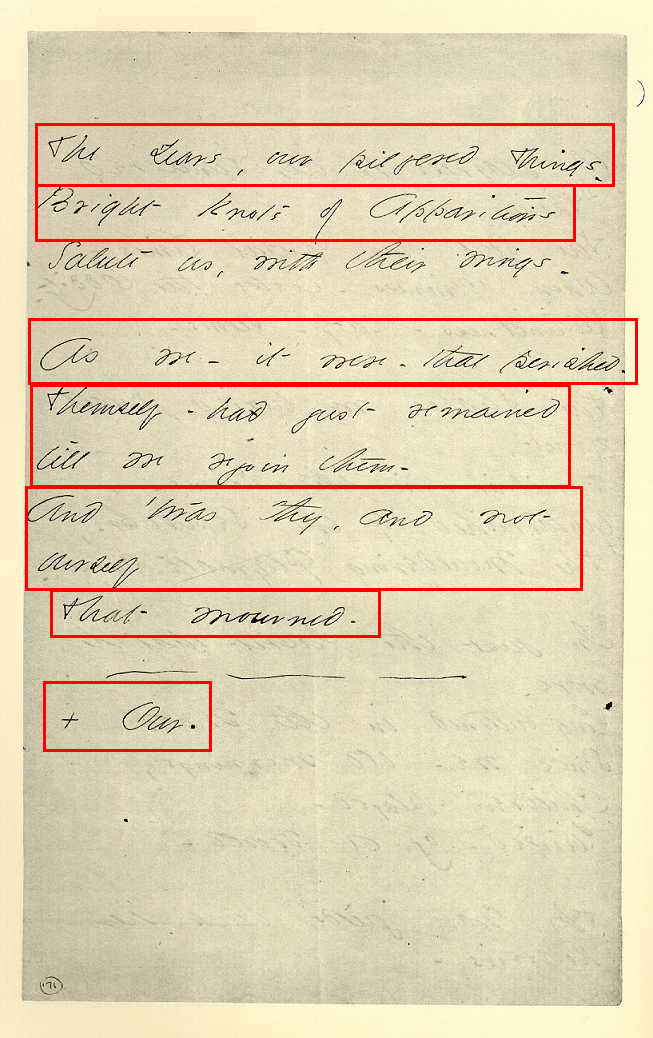 The Years, our pilfered things.
Bright Knots of Apparitions
Salute us, with their wings -
As we - it were - that perished -
Themself - had just remained
till we rejoin them -
And 'twas they, and not
ourself
That mourned -
+ Our.
171